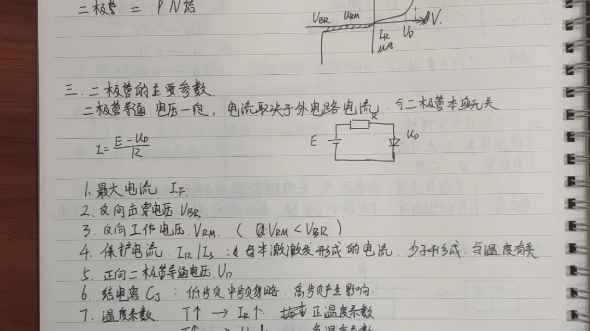 二极管 = PN结
VBR VRM
IR UD V.
μA
三. 二极管的主要参数
二极管导通 电压一定, 电流取决于外电路电流. 与二极管本身无关
I = (E - UD) / R
E R UD
1. 最大电流 IF.
2. 反向击穿电压 VBR
3. 反向工作电压 VRM. ( VRM < VBR )
4. 保护电流. IR / IS : 本激激发形成的电流. 少子形成. 与温度有关
5. 正向二极管导通电压 UD
6. 结电容 CJ : 低步频忽略. 高步频产生影响.
7. 温度系数 T↑ → IR↑. 正温度系数
T↑ → 负温度系数